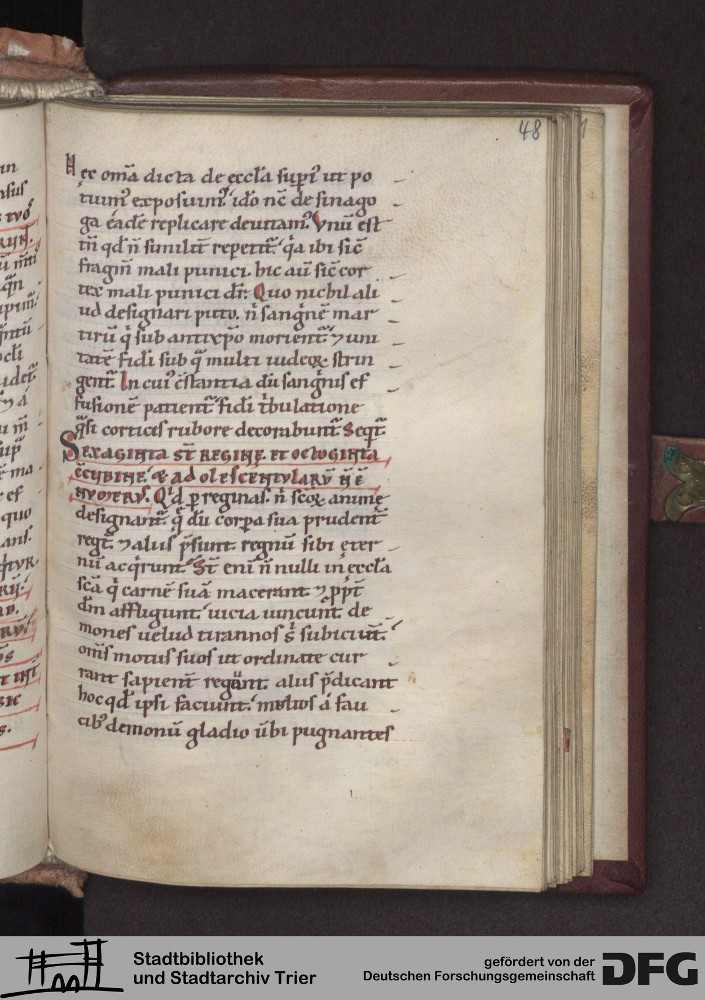 48
Hec om̄a dicta de eccl̄a supi᷑ ut po
tuim᷒ exposuim᷒. ido nc̄ de sinago
ga eadē replicare deuitam᷒. Vnū est
tn̄ qd n̄ similit̄ repetit᷑. q̇a ibi sic̄
fragm̄ mali punici. hic aū sic̄ cor
tex mali punici dr̄. Quo nichil ali
ud designari puto. n̄ sangnē mar
tirū q̇ sub antixpō morient᷑. ⁊ uni
tatē fidi sub q̄ multi iudeoꝝ strin
gent᷑. In cui᷒ c̄stantia dū sangnis ef
fusionē patient᷑ fidi t̄bulatione
q̇si corticis rubore decorabunt᷑. Seqt᷑.
SEXAGINTA ST̄ REGINE ET OCTOGINTA
C̄CVBINE. & ADOLESCENTVLARV̄ N̄ Ē
NVMERVS. Qd ꝑ reginas. n̄ scoꝝ anime
designant᷑. q̇ dū corpa sua prudent̄
regt̄. ⁊ aliis p̄sunt. regnū sibi eter
nū acq̇runt. St̄ eni n̄ nulli in eccl̄a
scā q̇ carnē suā macerant ⁊ ꝓpt̄
dm̄ affligunt. uicia uincunt. de
mones uelud tirannos s̄ subiciūt.
om̄s motus suos ut ordinate cur
rant sapient̄ regunt. aliis p̄dicant
hoc qd ipsi faciunt. melius a fau
cib᷒ demonū gladio ūbi pugnantes
Stadtbibliothek
und Stadtarchiv Trier
gefördert von der
Deutschen Forschungsgemeinschaft
DFG